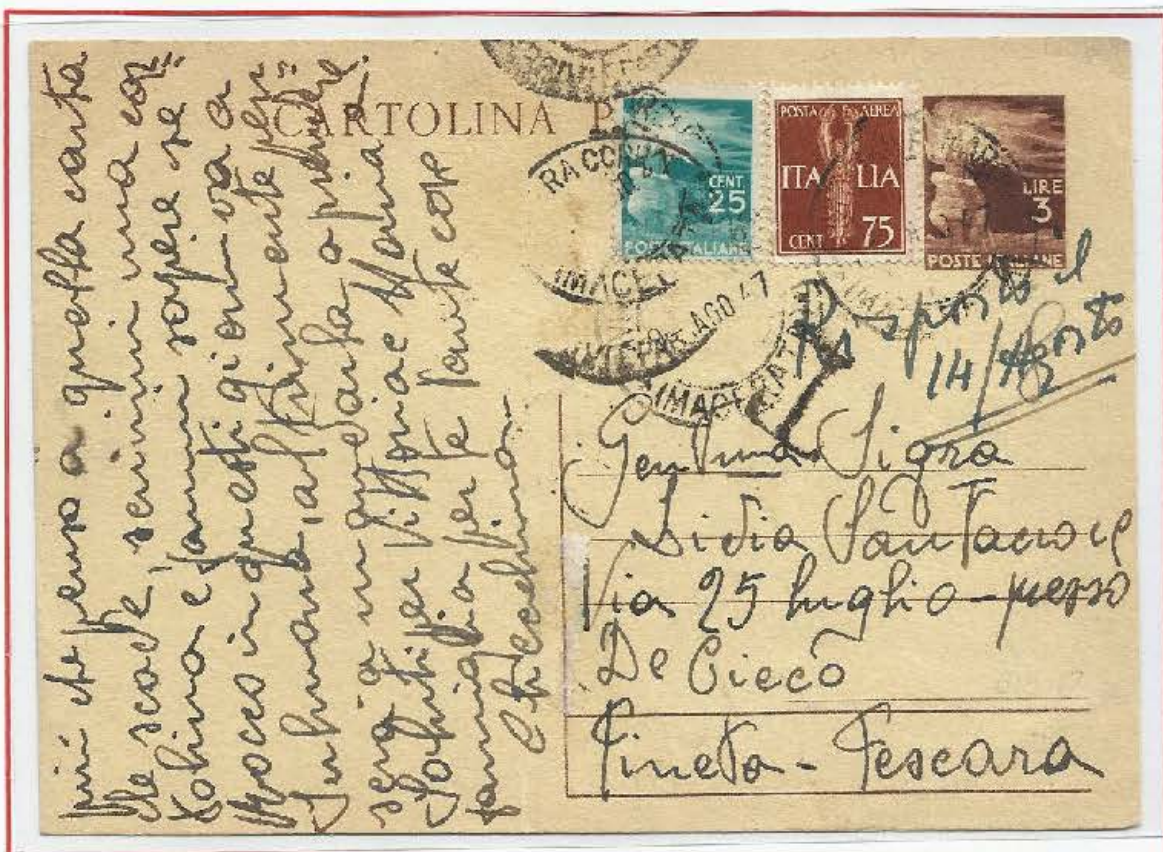 CARTOLINA P
CENT. 25
POSTE ITALIANE
POSTA AEREA
ITALIA
CENT 75
LIRE 3
POSTE ITALIANE
(MACERATA)
AGO 47
(MACERATA)
Risposto il
14/Agosto
T
Gent.ma Sig.ra
Lidia Santacroce
Via 25 luglio - presso
De Ciecò
Pineta - Pescara
che penso a quella carta
che scade, scrivimi una car=
tolina e fammi sapere se
Rocco in questi giorni va a
a prendere
sera
Saluti per Vittoria e Maria
famiglia per te tante cose
Checchina